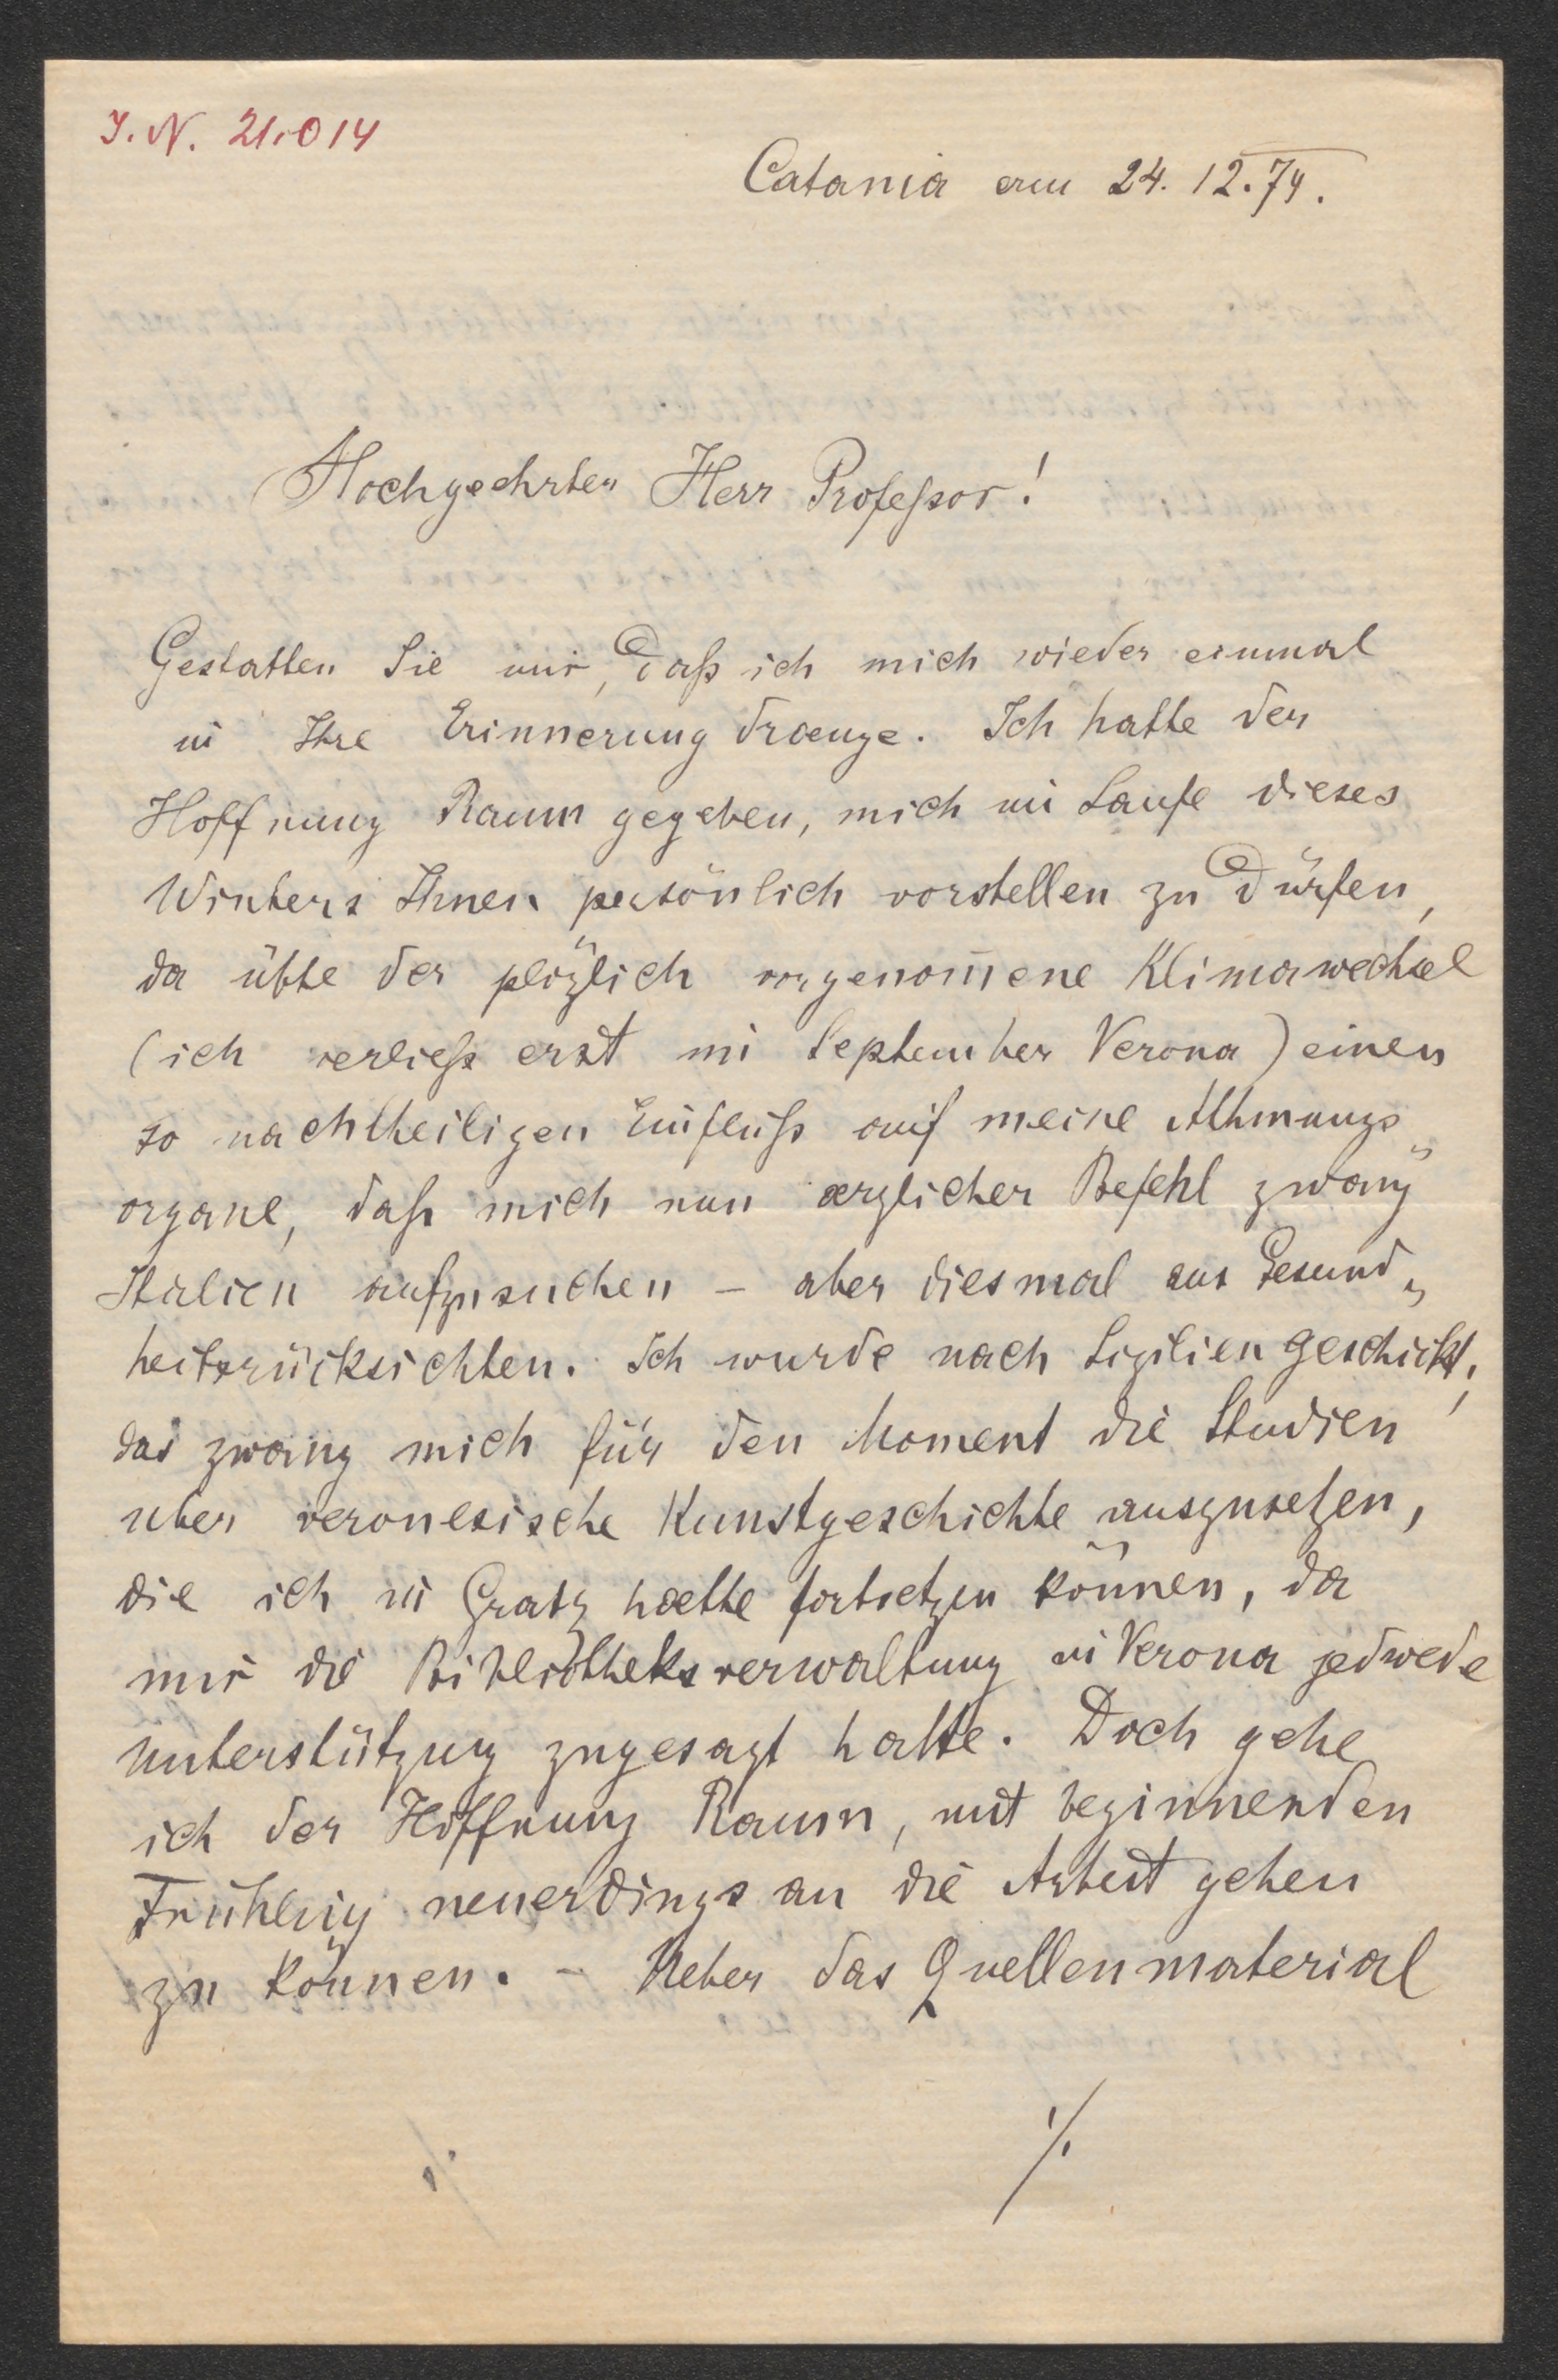 I. N. 21.014
Catania am 24. 12. 74.
Hochgeehrter Herr Professor!
Gestatten Sie mir, daß ich mich wieder einmal
in Ihre Erinnerung draenge. Ich hatte der
Hoffnung Raum gegeben, mich im Laufe dieses
Winters Ihnen persönlich vorstellen zu dürfen,
da übte der plözlich vorgenom̄ene Klimawechsel
(ich verließ erst im September Verona) einen
so nachtheiligen Einfluß auf meine Athmungs„
organe, daß mich nun aerzlicher Befehl zwang
Italien aufzusuchen – aber diesmal aus Gesund„
heitsrücksichten. Ich wurde nach Sizilien geschickt;
das zwang mich für den Moment die Studien
uber veronesische Kunstgeschichte auszusetzen,
die ich in Gratz haette fortsetzen können, da
mir die Bibliotheksverwaltung in Verona jedwede
Unterstützung zugesagt hatte. Doch gebe
ich der Hoffnung Raum, mit beginnenden
Frühling neuerdings an die Arbeit gehen
zu können. – Ueber das Quellenmaterial
./.